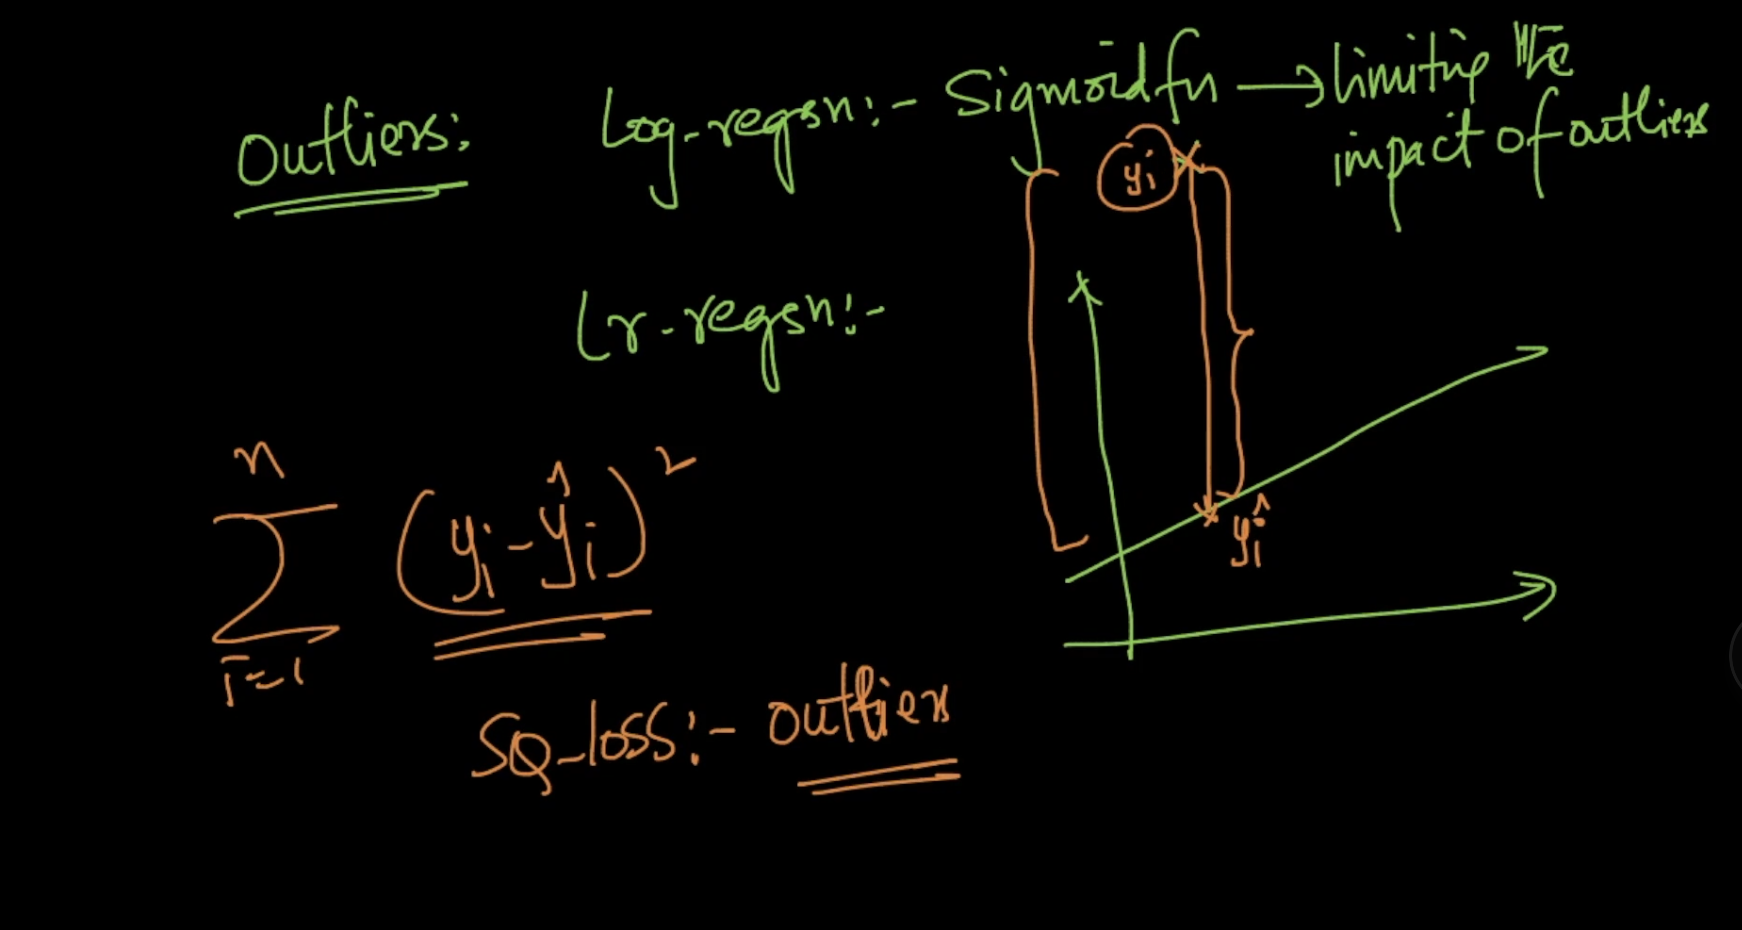 Outliers: Log-regsn:- Sigmoid fn → limiting the
impact of outliers
yi
Lr-regsn:-
n
Σ (yi-ŷi)²
i=1
ŷi
SQ-loss:- outliers